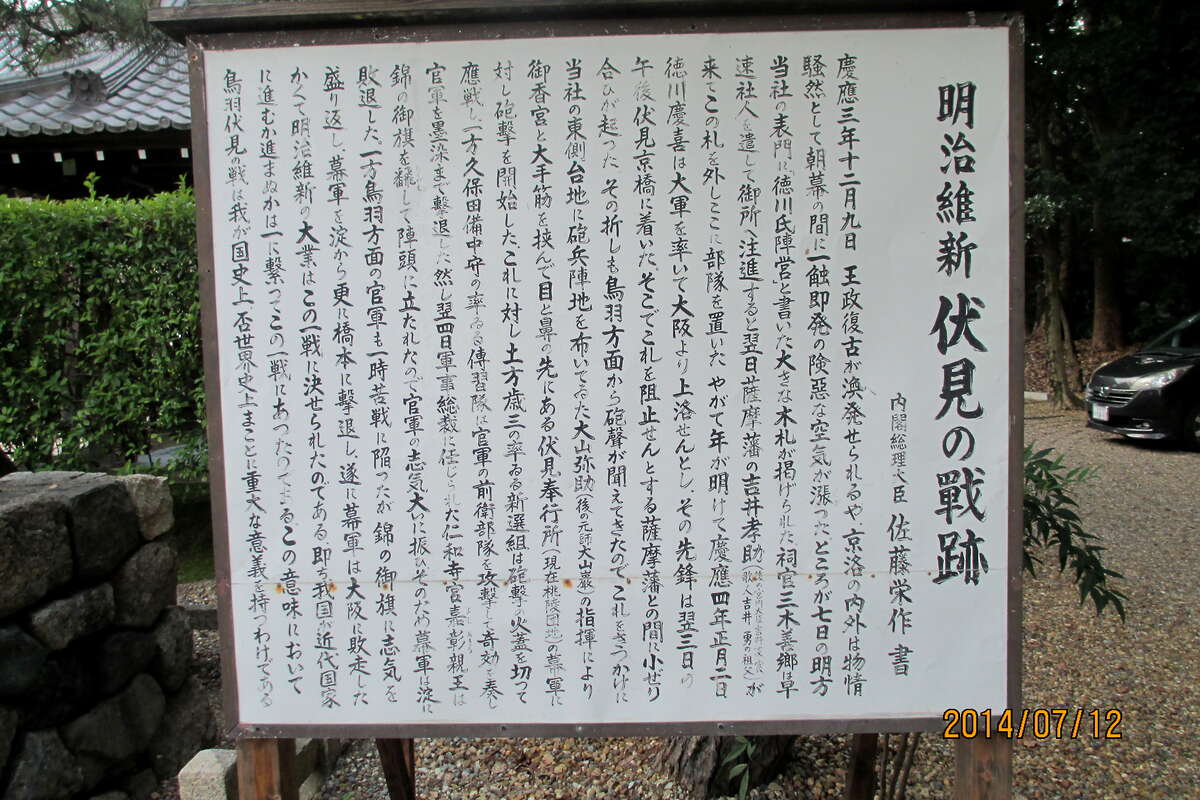 明治維新 伏見の戰跡
内閣総理大臣 佐藤栄作 書
慶應三年十二月九日 王政復古が渙発せられるや京洛の内外は物情
騒然として朝幕の間に一触即発の険悪な空気が漲った ところが七日の明方
当社の表門に徳川氏陣営と書いた大きな木札が掲げられた 祠官三木善郷は早
速社人を遣して御所へ注進すると翌日薩摩藩の吉井孝助(歌人吉井 勇の祖父)が
来てこの札を外しここに部隊を置いた やがて年が明けて慶應四年正月二日
徳川慶喜は大軍を率いて大阪より上洛せんとし その先鋒は翌三日の
午後伏見京橋に着いた。そこでこれを阻止せんとする薩摩藩との間に小ぜり
合ひが起った その折しも鳥羽方面から砲聲が聞えてきたので、これをきっかけに
当社の東側台地に砲兵陣地を布いてゐた大山弥助(後の元師大山巌)の指揮により
御香宮と大手筋を挾んで目と鼻の先にある伏見奉行所(現在桃陵団地)の幕軍に
対し砲撃を開始した、これに対し土方歳三の率ゐる新選組は砲撃の火蓋を切って
應戦し、一方久保田備中守の率ゐる傳習隊は官軍の前衛部隊を攻撃して奇効を奏し
官軍を墨染まで撃退した 然し翌四日軍事総裁に任じられた仁和寺宮嘉彰親王は
錦の御旗を飜して陣頭に立たれたので官軍の志気大いに振ひそのため幕軍は淀に
敗退した。一方鳥羽方面の官軍も一時苦戦に陥ったが 錦の御旗に志気を
盛り返し、幕軍を淀から更に橋本に撃退し、遂に幕軍は大阪に敗走した
かくて明治維新の大業はこの一戦に決せられたのである。即ち我国が近代国家
に進むか進まぬかは一に繋ってこの一戦にあったのである。この意味において
鳥羽伏見の戦は我が国史上否世界史上まことに重大な意義を持つわけである
2014/07/12